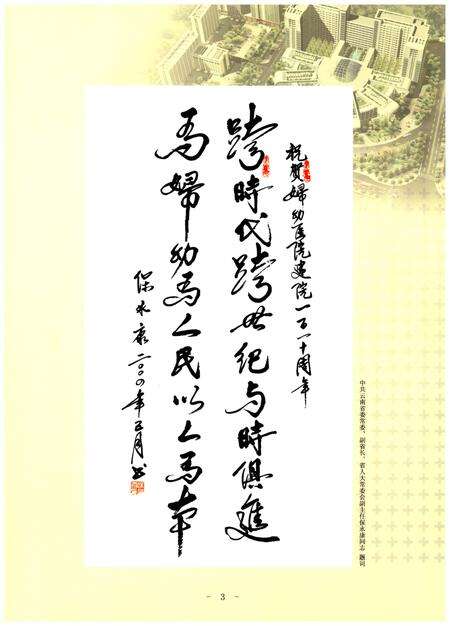 祝贺婦幼医院建院一百一十周年
跨時代跨世纪与時俱進
為婦幼為人民以人為本
保永康二〇〇四年三月书
中共云南省委常委、副省长、省人大常委会副主任保永康同志 题词
- 3 -